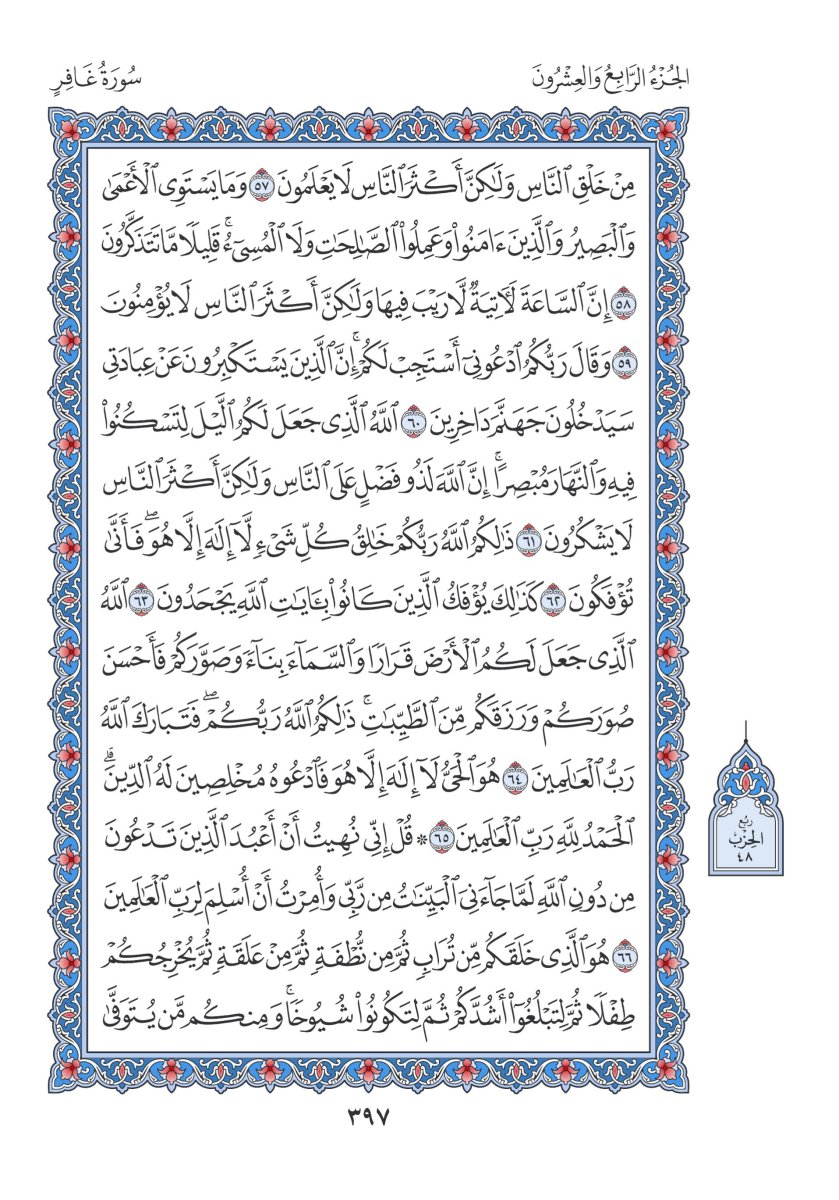 الجُزْءُ الرَّابِعُ وَالعِشْرُونَ
سُورَةُ غَافِرٍ
مِنْ خَلْقِ ٱلنَّاسِ وَلَٰكِنَّ أَكْثَرَ ٱلنَّاسِ لَا يَعْلَمُونَ ٥٧ وَمَا يَسْتَوِى ٱلْأَعْمَىٰ
وَٱلْبَصِيرُ وَٱلَّذِينَ ءَامَنُوا۟ وَعَمِلُوا۟ ٱلصَّٰلِحَٰتِ وَلَا ٱلْمُسِىٓءُۚ قَلِيلًا مَّا تَتَذَكَّرُونَ
٥٨ إِنَّ ٱلسَّاعَةَ لَءَاتِيَةٌ لَّا رَيْبَ فِيهَا وَلَٰكِنَّ أَكْثَرَ ٱلنَّاسِ لَا يُؤْمِنُونَ
٥٩ وَقَالَ رَبُّكُمُ ٱدْعُونِىٓ أَسْتَجِبْ لَكُمْۚ إِنَّ ٱلَّذِينَ يَسْتَكْبِرُونَ عَنْ عِبَادَتِى
سَيَدْخُلُونَ جَهَنَّمَ دَاخِرِينَ ٦٠ ٱللَّهُ ٱلَّذِى جَعَلَ لَكُمُ ٱلَّيْلَ لِتَسْكُنُوا۟
فِيهِ وَٱلنَّهَارَ مُبْصِرًاۚ إِنَّ ٱللَّهَ لَذُو فَضْلٍ عَلَى ٱلنَّاسِ وَلَٰكِنَّ أَكْثَرَ ٱلنَّاسِ
لَا يَشْكُرُونَ ٦١ ذَٰلِكُمُ ٱللَّهُ رَبُّكُمْ خَٰلِقُ كُلِّ شَىْءٍ لَّآ إِلَٰهَ إِلَّا هُوَۖ فَأَنَّىٰ
تُؤْفَكُونَ ٦٢ كَذَٰلِكَ يُؤْفَكُ ٱلَّذِينَ كَانُوا۟ بِـَٔايَٰتِ ٱللَّهِ يَجْحَدُونَ ٦٣ ٱللَّهُ
ٱلَّذِى جَعَلَ لَكُمُ ٱلْأَرْضَ قَرَارًا وَٱلسَّمَآءَ بِنَآءً وَصَوَّرَكُمْ فَأَحْسَنَ
صُوَرَكُمْ وَرَزَقَكُم مِّنَ ٱلطَّيِّبَٰتِۚ ذَٰلِكُمُ ٱللَّهُ رَبُّكُمْۖ فَتَبَارَكَ ٱللَّهُ
رَبُّ ٱلْعَٰلَمِينَ ٦٤ هُوَ ٱلْحَىُّ لَآ إِلَٰهَ إِلَّا هُوَ فَٱدْعُوهُ مُخْلِصِينَ لَهُ ٱلدِّينَۗ
ٱلْحَمْدُ لِلَّهِ رَبِّ ٱلْعَٰلَمِينَ ٦٥ * قُلْ إِنِّى نُهِيتُ أَنْ أَعْبُدَ ٱلَّذِينَ تَدْعُونَ
مِن دُونِ ٱللَّهِ لَمَّا جَآءَنِىَ ٱلْبَيِّنَٰتُ مِن رَّبِّى وَأُمِرْتُ أَنْ أُسْلِمَ لِرَبِّ ٱلْعَٰلَمِينَ
٦٦ هُوَ ٱلَّذِى خَلَقَكُم مِّن تُرَابٍ ثُمَّ مِن نُّطْفَةٍ ثُمَّ مِنْ عَلَقَةٍ ثُمَّ يُخْرِجُكُمْ
طِفْلًا ثُمَّ لِتَبْلُغُوٓا۟ أَشُدَّكُمْ ثُمَّ لِتَكُونُوا۟ شُيُوخًاۚ وَمِنكُم مَّن يُتَوَفَّىٰ
ربع
الحِزْب
٤٨
٣٩٧